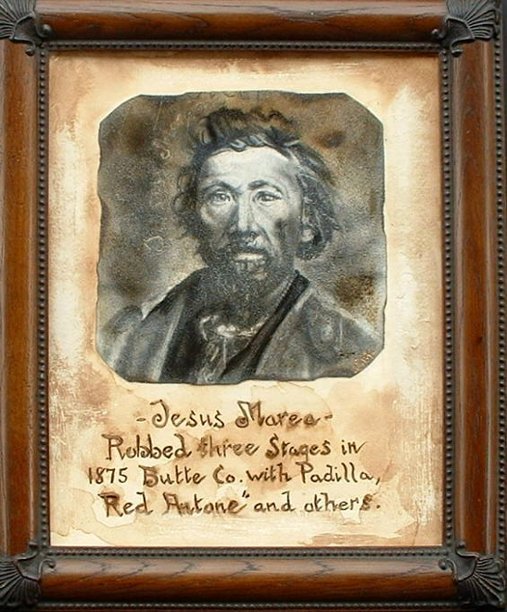 -Jesus Marea-
Robbed three Stages in
1875 Butte Co. with Padilla,
Red Antone" and others.